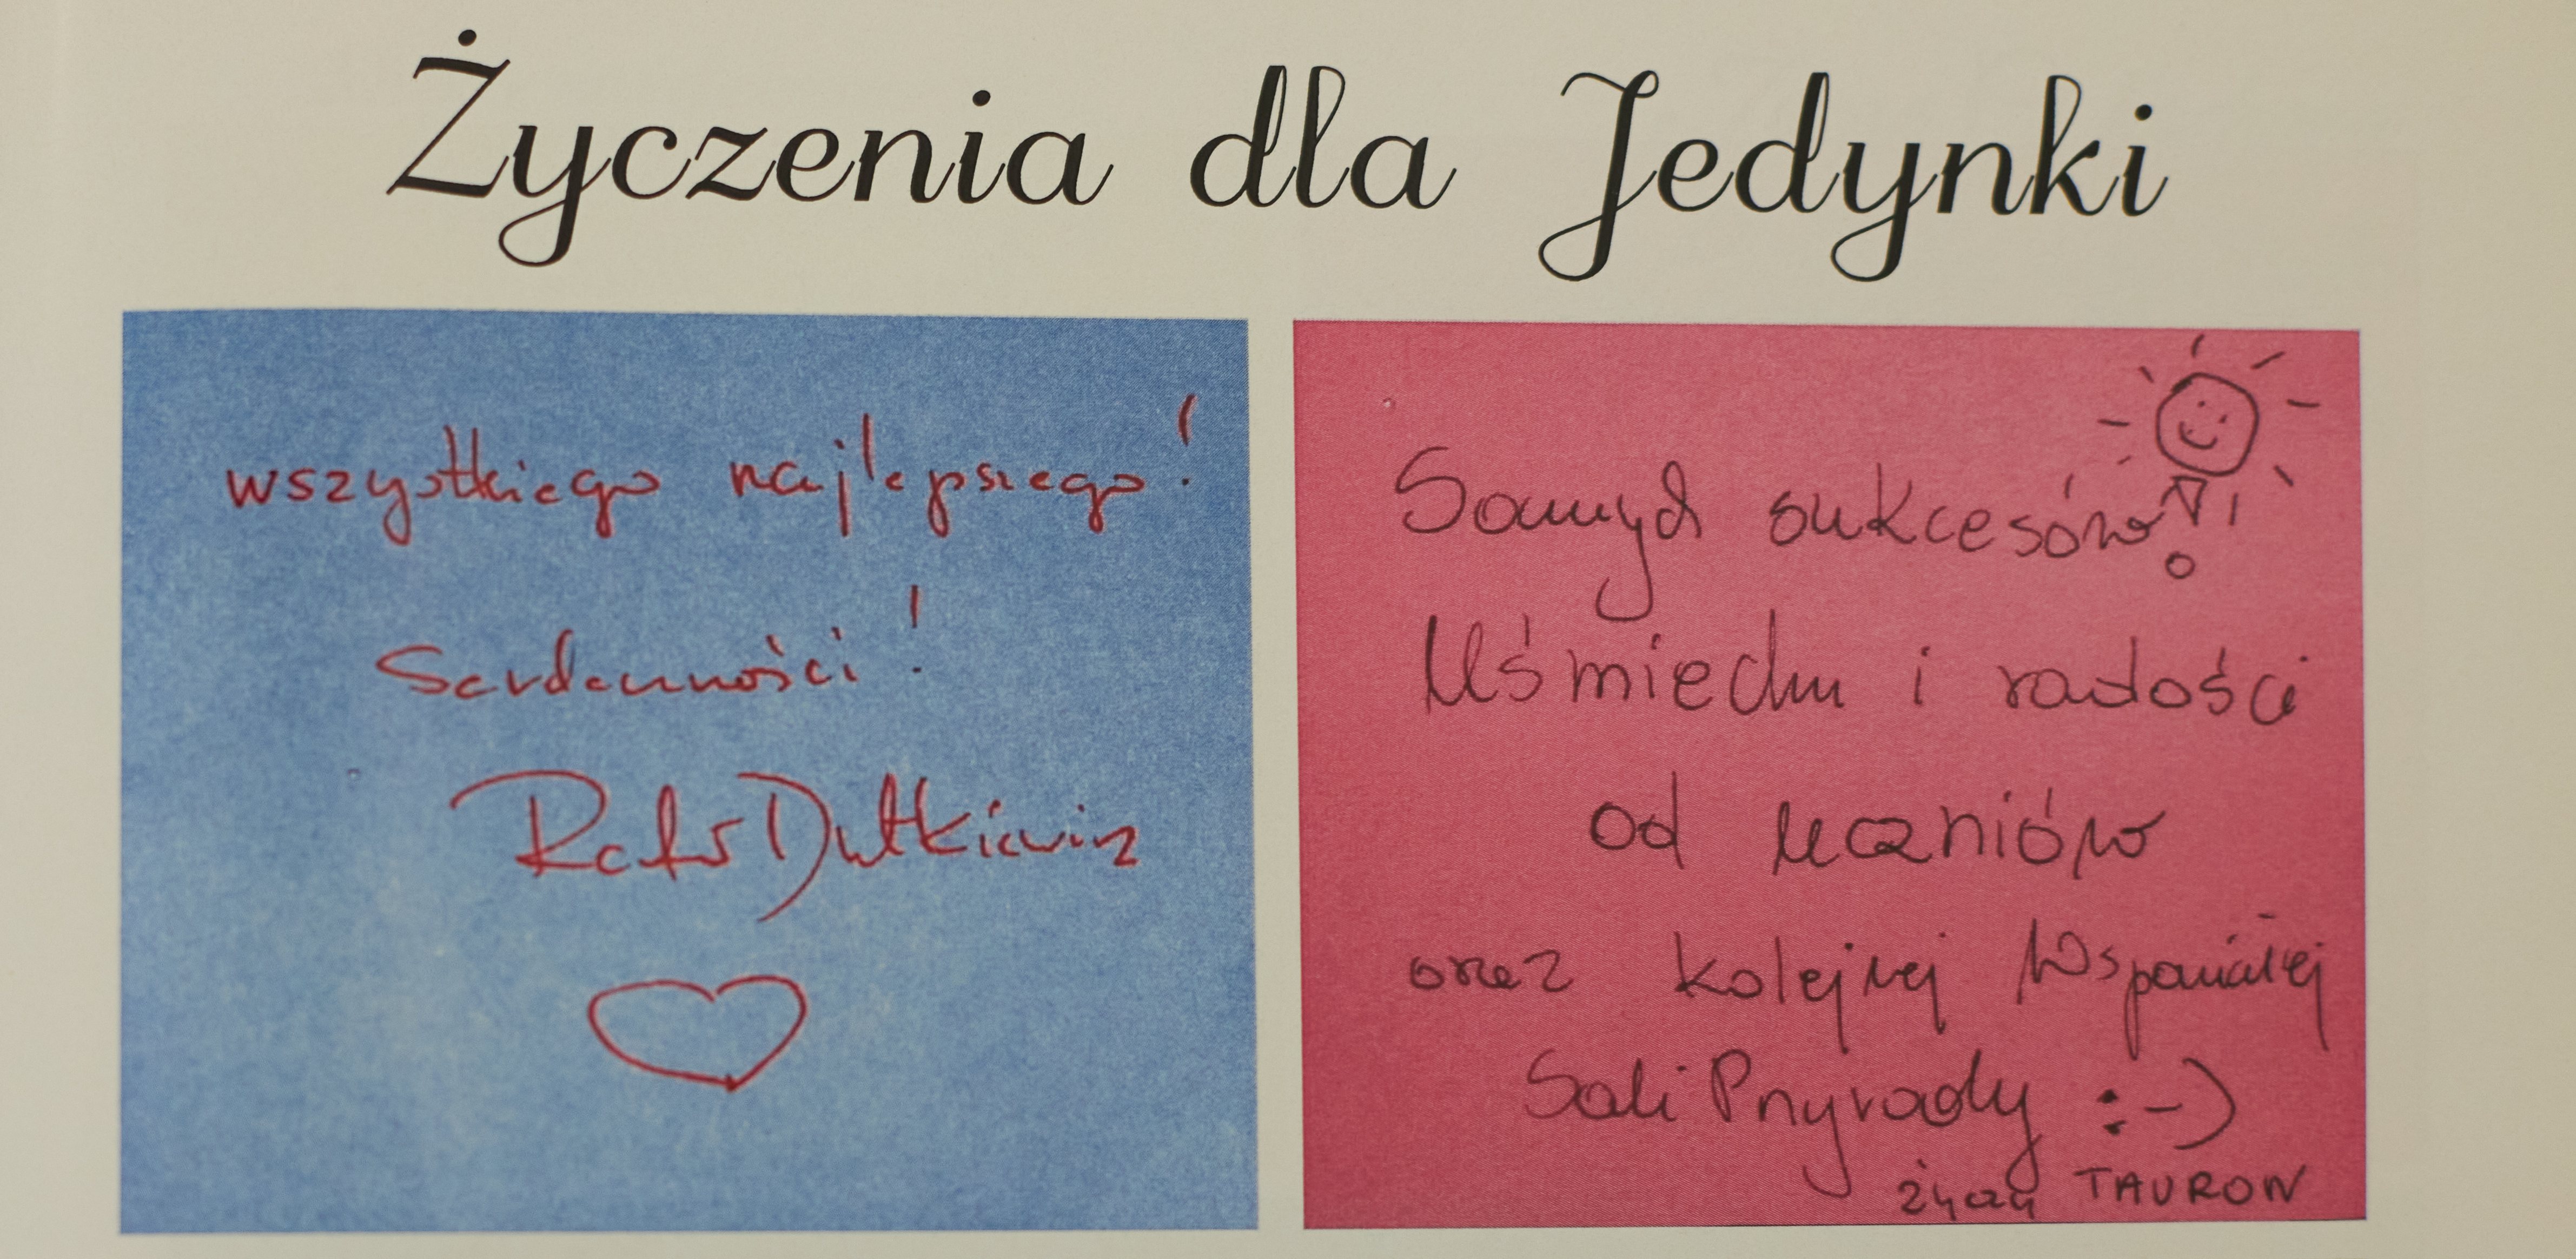 Życzenia dla Jedynki
wszystkiego najlepszego!
Serdeczności!
Rafał Dutkiewicz
Samych sukcesów!
Uśmiechu i radości
od uczniów
oraz kolejnej Wspaniałej
Sali Przyrody :-)
życzy TAURON